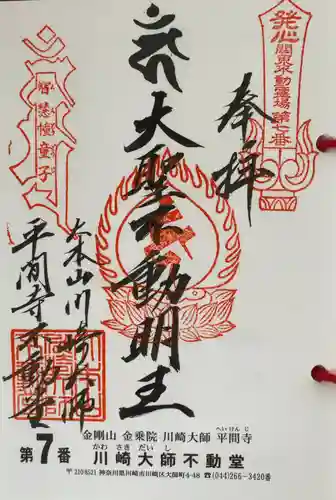 発心
関東不動霊場
第七番
奉拝
大聖不動明王
智慧幢童子
大本山川崎大師
平間寺不動堂
へいけんじ
金剛山 金乗院 川崎大師 平間寺
かわ さき だい し
第7番 川崎大師不動堂
〒210-8521 神奈川県川崎市川崎区大師町4-48 ☎(044)266-3420番